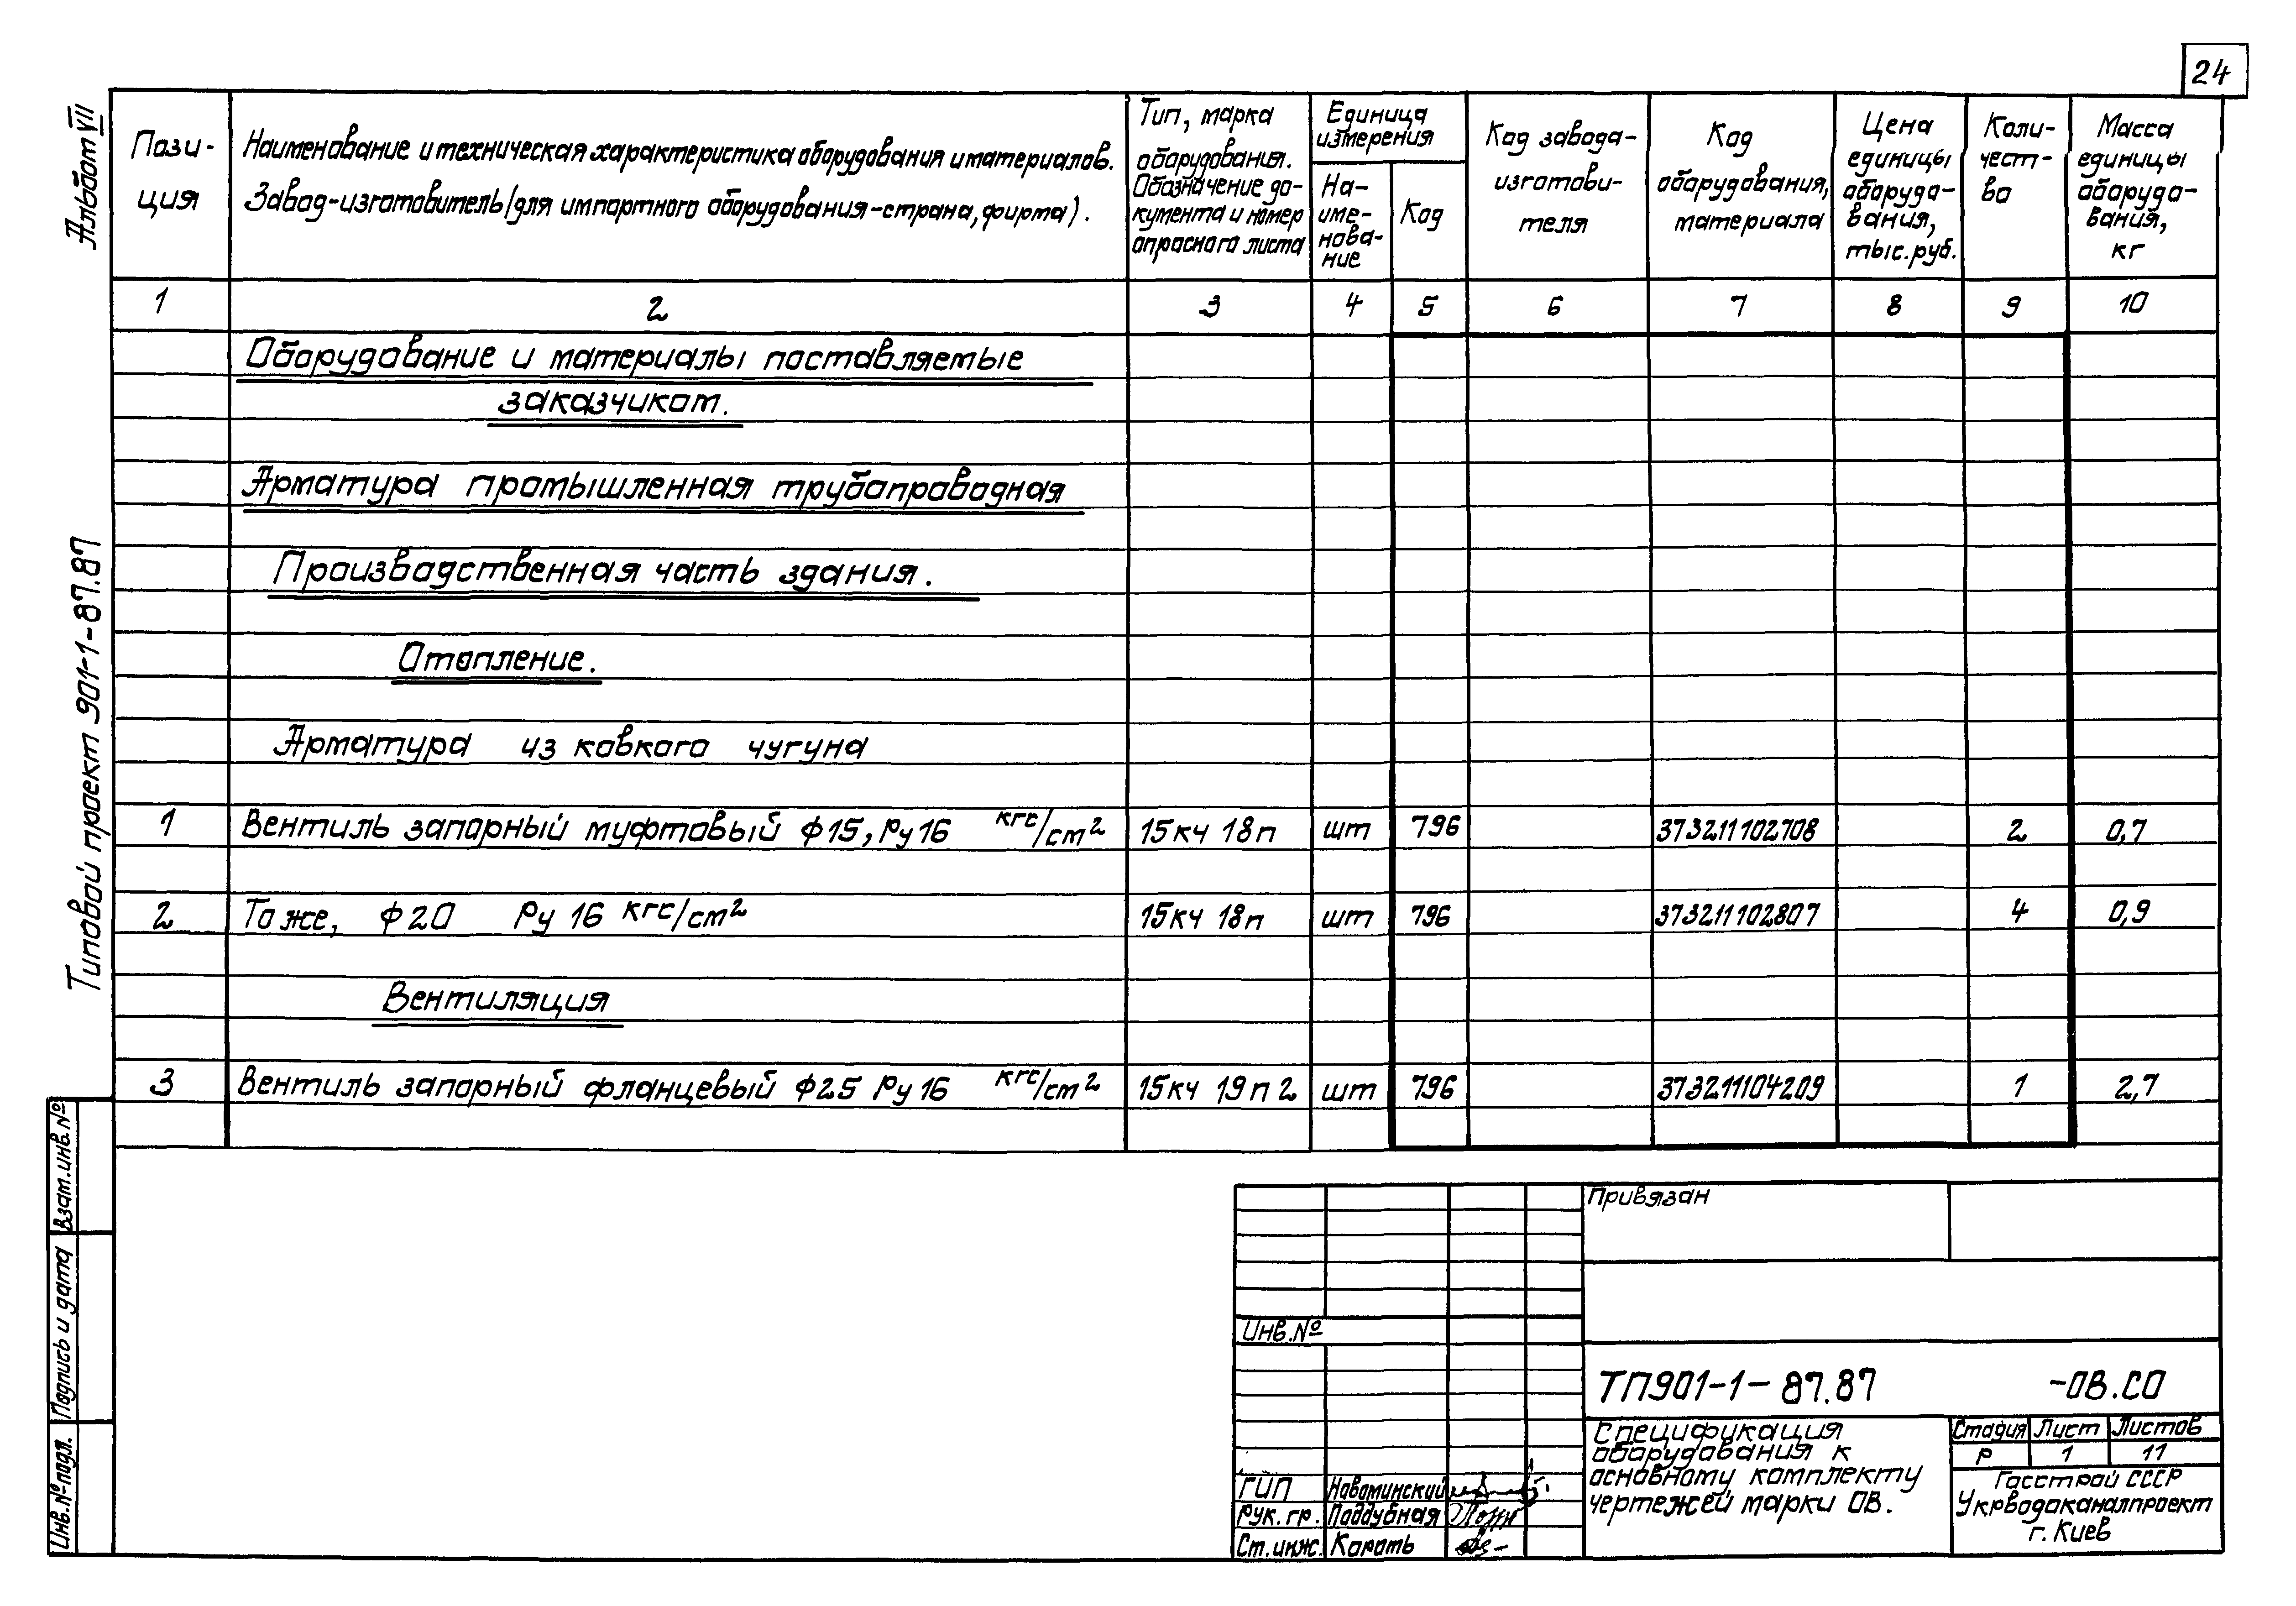 24
Альбом VII
Типовой проект 901-1-87.87
Пози-
ция
Наименование и техническая характеристика оборудования и материалов.
Завод-изготовитель (для импортного оборудования-страна, фирма).
Тип, марка
оборудования.
Обозначение до-
кумента и номер
опросного листа
Единица
измерения
На-
име-
нова-
ние
Код
Код завода-
изготови-
теля
Код
оборудования,
материала
Цена
единицы
оборудо-
вания,
тыс.руб.
Коли-
чест-
во
Масса
единицы
оборудо-
вания,
кг
1 2 3 4 5 6 7 8 9 10
Оборудование и материалы поставляемые
заказчиком.
Арматура промышленная трубопроводная
Производственная часть здания.
Отопление.
Арматура из ковкого чугуна
1 Вентиль запорный муфтовый ф15, Ру16 кгс/см2 15кч 18п шт 796 373211102708 2 0,7
2 То же, ф20 Ру 16 кгс/см2 15кч 18п шт 796 373211102807 4 0,9
Вентиляция
3 Вентиль запорный фланцевый ф25 Ру16 кгс/см2 15кч 19п2 шт 796 373211104209 1 2,7
Взам.инв.№
Подпись и дата
Инв.№подл.
Привязан
Инв.№
ТП901-1-87.87 -ОВ.СО
Спецификация
оборудования к
основному комплекту
чертежей марки ОВ.
Стадия Лист Листов
Р 1 11
Госстрой СССР
Укрводоканалпроект
г. Киев
ГИП Новоминский
Рук. гр. Поддубная
Ст. инж. Короть